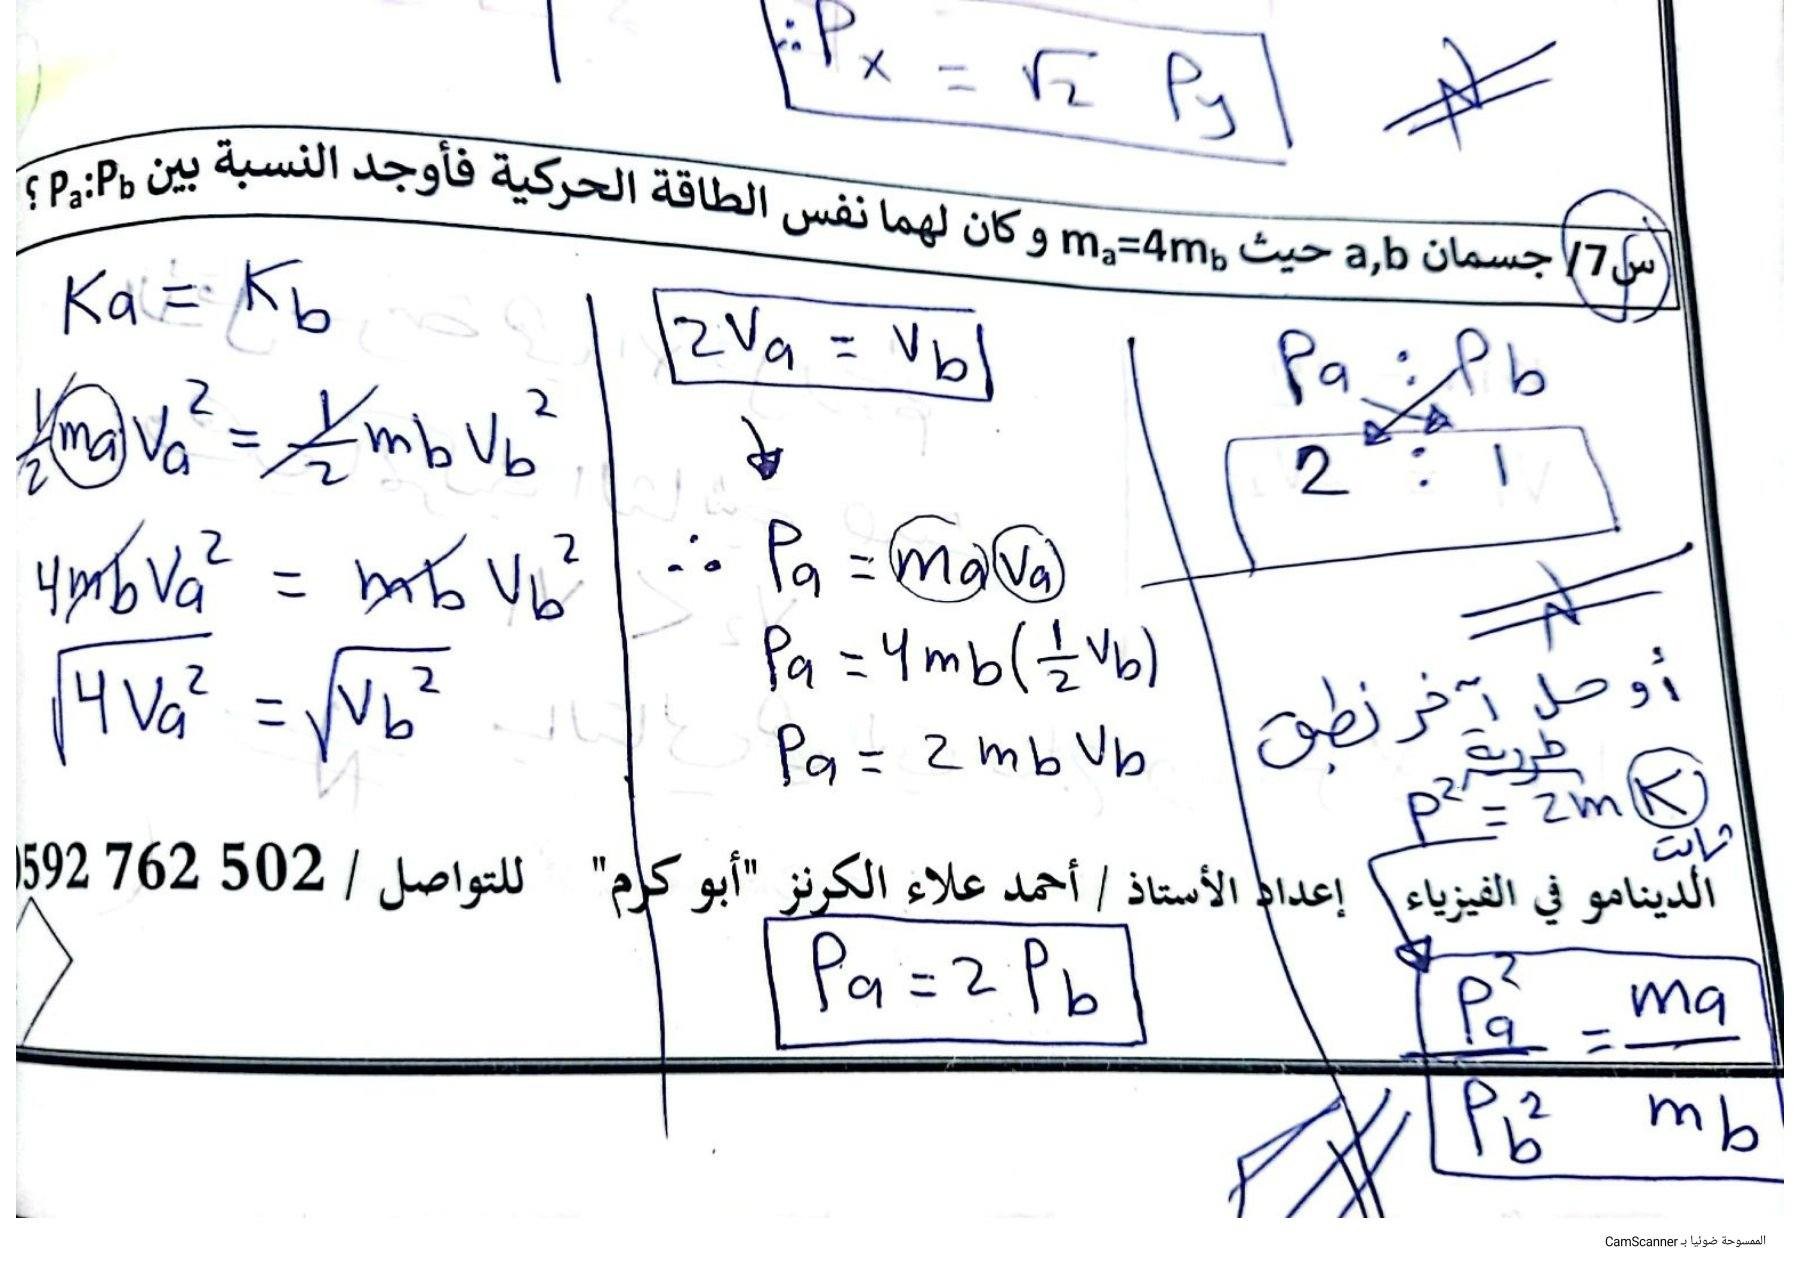 ∴ Px = √2 Py
س7/ جسمان a,b حيث ma=4mb و كان لهما نفس الطاقة الحركية فأوجد النسبة بين Pa:Pb ؟
Ka = Kb
1/2 ma Va² = 1/2 mb Vb²
4mb Va² = mb Vb²
√4Va² = √Vb²
2Va = Vb
∴ Pa = ma Va
Pa = 4mb(1/2 Vb)
Pa = 2 mb Vb
Pa = 2 Pb
Pa : Pb
2 : 1
أو حل آخر نطبق
طردية
P² = 2m K
ثابت
Pa² / Pb² = ma / mb
الدينامو في الفيزياء إعداد الأستاذ / أحمد علاء الكرنز "أبو كرم" للتواصل / 0592 762 502
الممسوحة ضوئيا بـ CamScanner